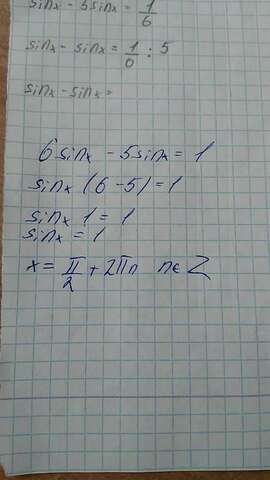 sinx - 5sinx = 1/6
sinx - sinx = 1/6 : 5
sinx - sinx =
6sinx - 5sinx = 1
sinx (6 - 5) = 1
sinx 1 = 1
sinx = 1
x = π/2 + 2πn n∈Z